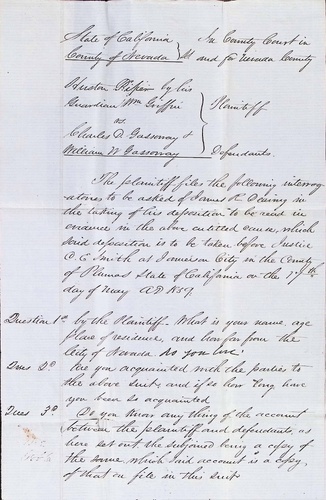 State of California } In County Court in
County of Nevada } and for Nevada County
Huston by his
Guardian Wm Griffin } Plaintiff
vs.
Charles R Gassoway &
William W Gassoway Defendants.
The plaintiff files the following interrog
atories to be asked of James in
the taking of his deposition to be read in
evidence in the above entitled cause, which
said deposition is to be taken before Justice
D. C. Smith at Jamerson City in the County
of Plumas State of California on the 7th
day of May AD 1859.
Question 1st by the Plaintiff. What is your name, age
place of residence, and how far from the
City of Nevada do you live.
Ques 2d Are you acquainted with the parties to
the above suit, and if so how long have
you been so acquainted
Ques 3d Do you know any thing of the account
between the plaintiff and defendants as
here set out, the subjoined being a copy of
the same, which said account is a copy
of that on file in this suit